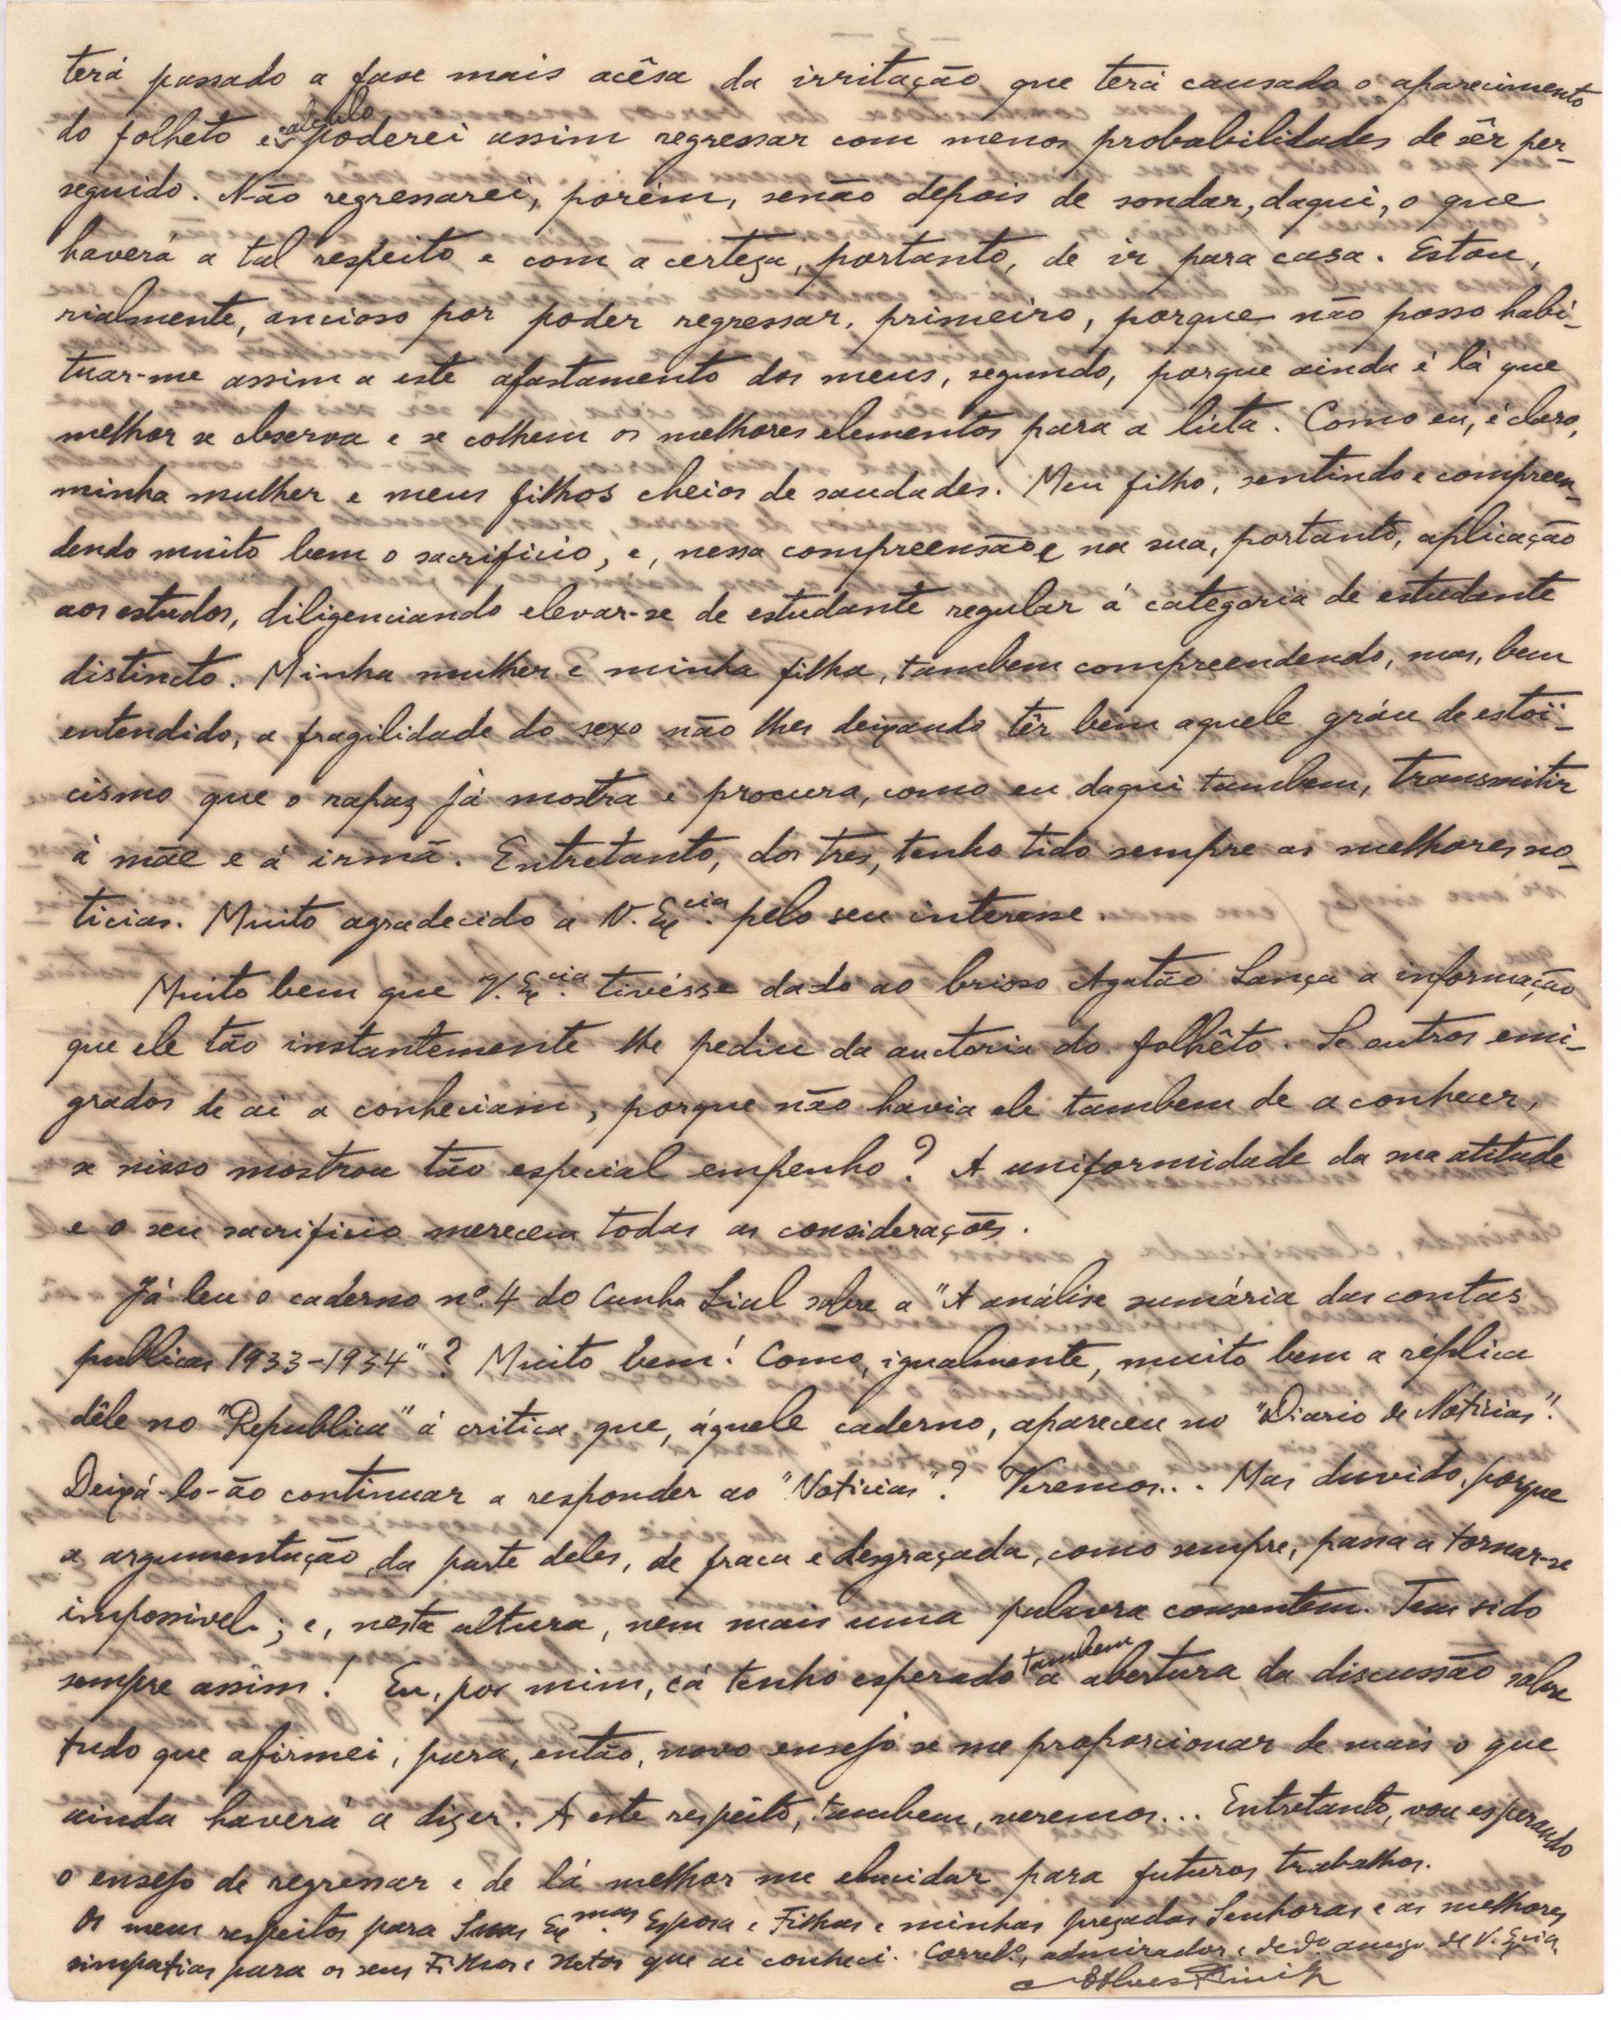 terá passado a fase mais acêsa da irritação que terá causado o aparecimento
do folheto e calculo poderei assim regressar com menos probabilidades de sêr per-
seguido. Não regressarei, porém, senão depois de sondar, daqui, o que
haverá a tal respeito e com a certeza, portanto, de ir para casa. Estou,
rialmente, ancioso por poder regressar, primeiro, porque não posso habi-
tuar-me assim a este afastamento dos meus, segundo, porque ainda é lá que
melhor se observa e se colhem os melhores elementos para a luta. Como eu, é claro,
minha mulher e meus filhos cheios de saudades. Meu filho, sentindo e compreen-
dendo muito bem o sacrificio, e, nessa compreensão e na sua, portanto, aplicação
aos estudos, diligenciando elevar-se de estudante regular á categoria de estudante
distincto. Minha mulher e minha filha, tambem compreendendo, mas, bem
entendido, a fragilidade do sexo não lhes deixando têr bem aquele gráu de estoï-
cismo que o rapaz já mostra e procura, como eu daqui tambem, transmitir
á mãe e á irmã. Entretanto, dos tres, tenho tido sempre as melhores no-
ticias. Muito agradecido a V. Ex.cia pelo seu interesse.
Muito bem que V. Ex.cia tivésse dado ao brioso Agatão Lança a informação
que ele tão instantemente lhe pediu da auctoria do folhêto. Se outros emi-
grados de aí a conheciam, porque não havia ele tambem de a conhecer,
se nisso mostrou tão especial empenho? A uniformidade da sua atitude
e o seu sacrificio merecem todas as considerações.
Já leu o caderno nº 4 do Cunha Lial sobre a "A análise sumária das contas
publicas 1933-1934"? Muito bem! Como, igualmente, muito bem a réplica
dêle no "Republica" á critica que, áquele caderno, apareceu no "Diario de Noticias".
Deixá-lo-ão continuar a responder ao "Noticias"? Veremos... Mas duvido, porque
a argumentação da parte deles, de fraca e desgraçada, como sempre, passa a tornar-se
impossivel; e, nesta altura, nem mais uma palavra consentem. Tem sido
sempre assim! Eu, por mim, cá tenho esperado tambem a abertura da discussão sobre
tudo que afirmei, para, então, novo ensejo se me proporcionar de mais o que
ainda haverá a dizer. A este respeito, tambem, veremos... Entretanto, vou esperando
o ensejo de regressar e de lá melhor me elucidar para futuros trabalhos.
Os meus respeitos para Suas Ex.mas Esposa e Filhas e minhas prezadas Senhoras e as melhores
simpatias para os seus Filhos e Netos que aí conheci. Correl.º, admirador e ded.º amigo de V. Ex.cia,